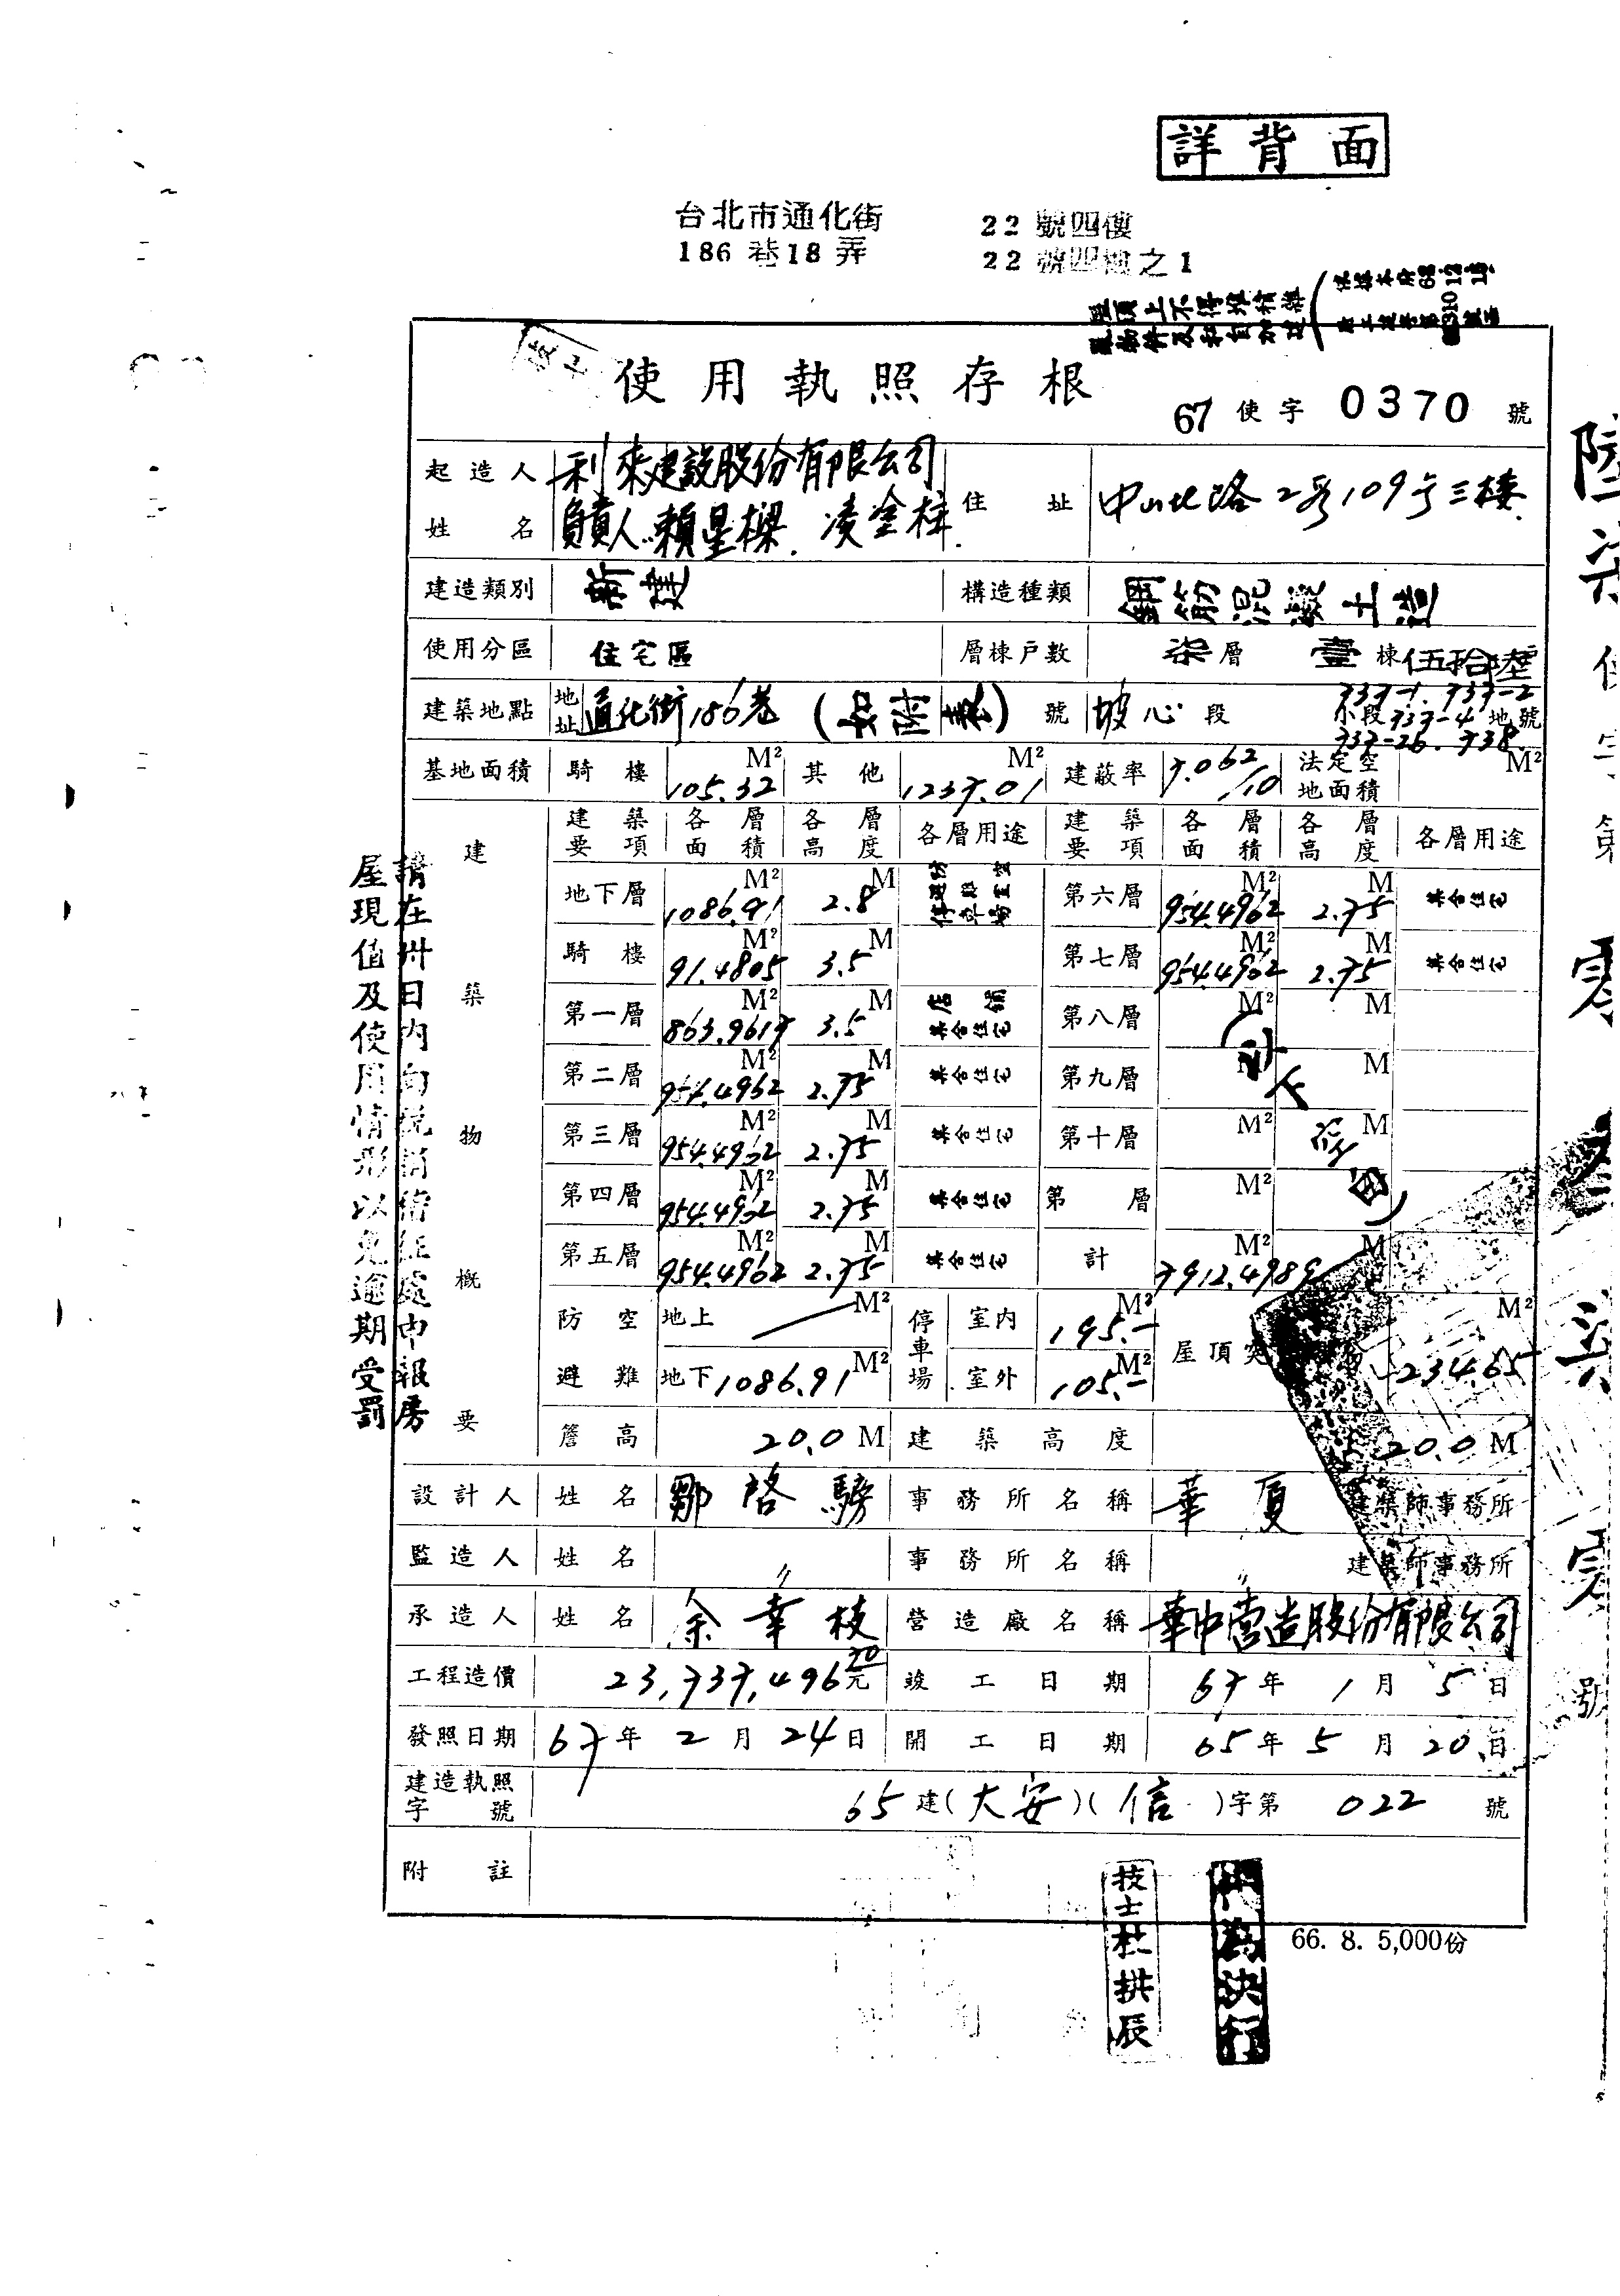 詳背面
台北市通化街 22 號四樓
186 巷 18 弄 22 號四樓之 1
使用執照存根
67 使字 0370 號
起造人姓名 利來建設股份有限公司 負責人 賴星樑 凌金柱 住址 中山北路2段109号三樓
建造類別 新建 構造種類 鋼筋混凝土造
使用分區 住宅區 層棟戶數 柒層 壹棟 伍拾陸
建築地點 地址 通化街186巷(如附表)號 坡心段 小段 地號 737-1.737-2 737-4 737-26.738
基地面積 騎樓 105.32 M² 其他 1237.01 M² 建蔽率 7.062/10 法定空地面積 M²
建築物概要
建築要項 各層面積 各層高度 各層用途 建築要項 各層面積 各層高度 各層用途
地下層 1086.91 M² 2.8 M 第六層 954.4962 M² 2.75 M 集合住宅
騎樓 91.4805 M² 3.5 M 第七層 954.4962 M² 2.75 M 集合住宅
第一層 863.9617 M² 3.5 M 店舖 集合住宅 第八層 M² M
第二層 954.4962 M² 2.75 M 集合住宅 第九層 M
第三層 954.4962 M² 2.75 M 集合住宅 第十層 M² M
第四層 954.4962 M² 2.75 M 集合住宅 第 層 M²
第五層 954.4962 M² 2.75 M 集合住宅 計 7912.4989 M² M
(以下空白)
防空避難 地上 M² 停車場 室內 195.- M² 屋頂突 234.65 M²
地下 1086.91 M² 室外 105.- M²
簷高 20.0 M 建築高度 20.0 M
設計人 姓名 鄒啓騤 事務所名稱 華厦 建築師事務所
監造人 姓名 〃 事務所名稱 〃 建築師事務所
承造人 姓名 余幸枝 營造廠名稱 華中營造股份有限公司
工程造價 23,737,496 70 元 竣工日期 67年1月5日
發照日期 67年2月24日 開工日期 65年5月20日
建造執照字號 65建(大安)(信)字第 022 號
附註
請在卅日內向稅捐稽征處申報房
屋現值及使用情形以免逾期受罰
技士杜拱辰
代為決行
66. 8. 5,000份